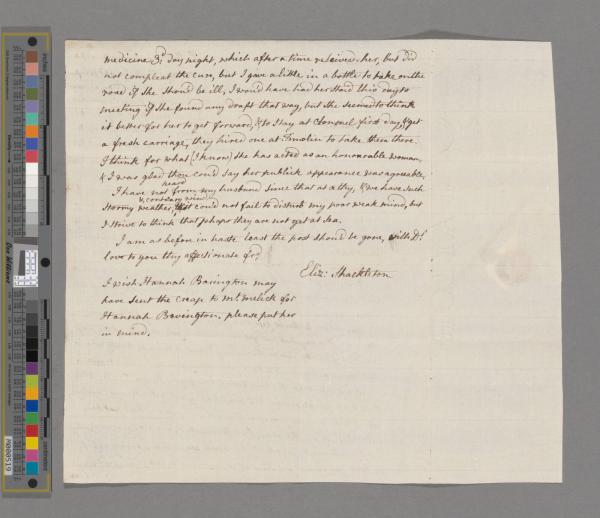 medicine 3d. day night, which after a time relieved her, but did
not compleat the cure, but I gave a little in a bottle to take on the
road if she should be ill, I would have had her staid this day to
meeting if she found any draft that way, but she seemed to think
it better for her to get forward, & to stay at Clonmel first day, & get
a fresh carriage, they hired one at Timolin to take them there.
I think for what (I know) she has acted as an honourable woman,
& I was glad thou could say her publick appearance was agreeable,
I have not heard from my husband since that as a thy, & we have such
stormy weather, & contrary winds that could not fail to disturb my poor weak mind, but
I strive to think that phaps they are not yet at sea.
I am as before in haste least the post should be gone, with Dr.
love to you thy affectionate frd.
Eliz: Shackleton
I wish Hannah Barington may
have sent the crape to Mr. Melick for
Hannah Bevington. please put her
in mind.
M000519